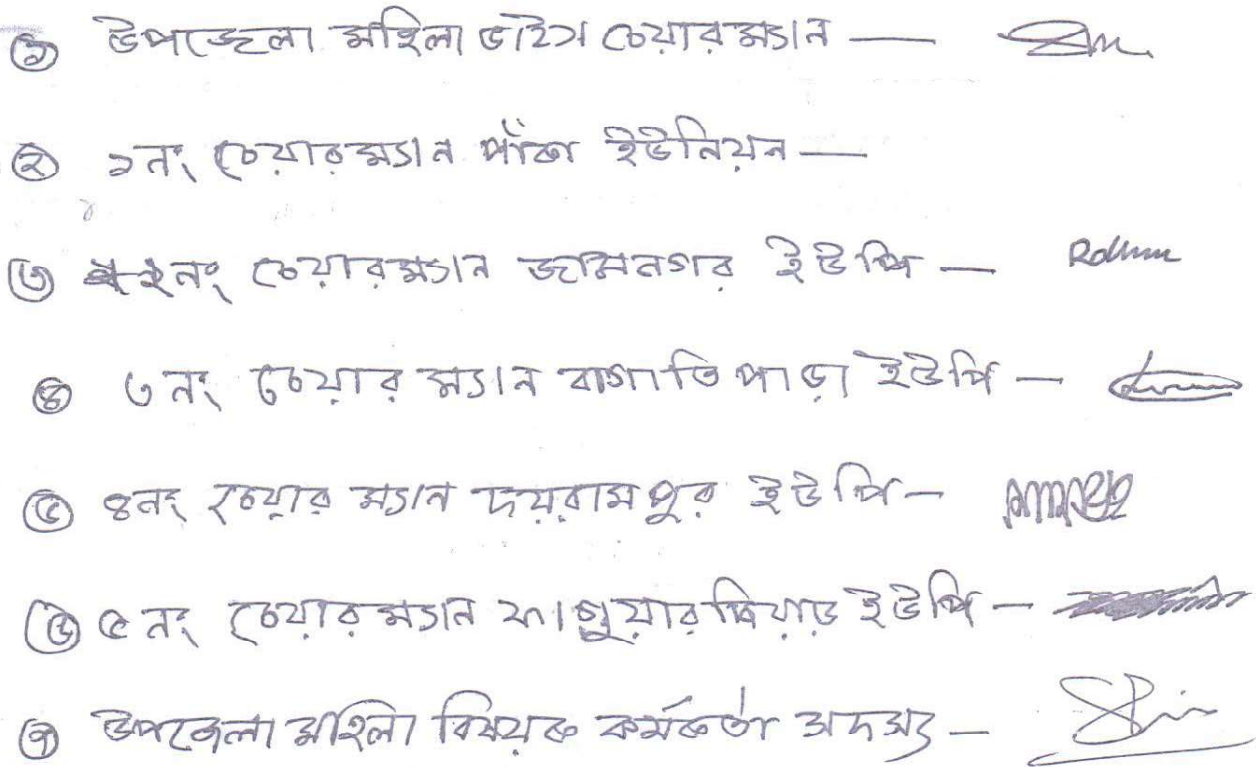 ১ উপজেলা মহিলা ভাইস চেয়ারম্যান —
২ ১নং চেয়ারম্যান পাঁকা ইউনিয়ন —
৩ ২নং চেয়ারম্যান জামনগর ইউপি —
৪ ৩নং চেয়ারম্যান বাগাতিপাড়া ইউপি —
৫ ৪নং চেয়ারম্যান দয়রামপুর ইউপি —
৬ ৫নং চেয়ারম্যান ফাগুয়ারদিয়াড় ইউপি —
৭ উপজেলা মহিলা বিষয়ক কর্মকর্তা সদস্য —